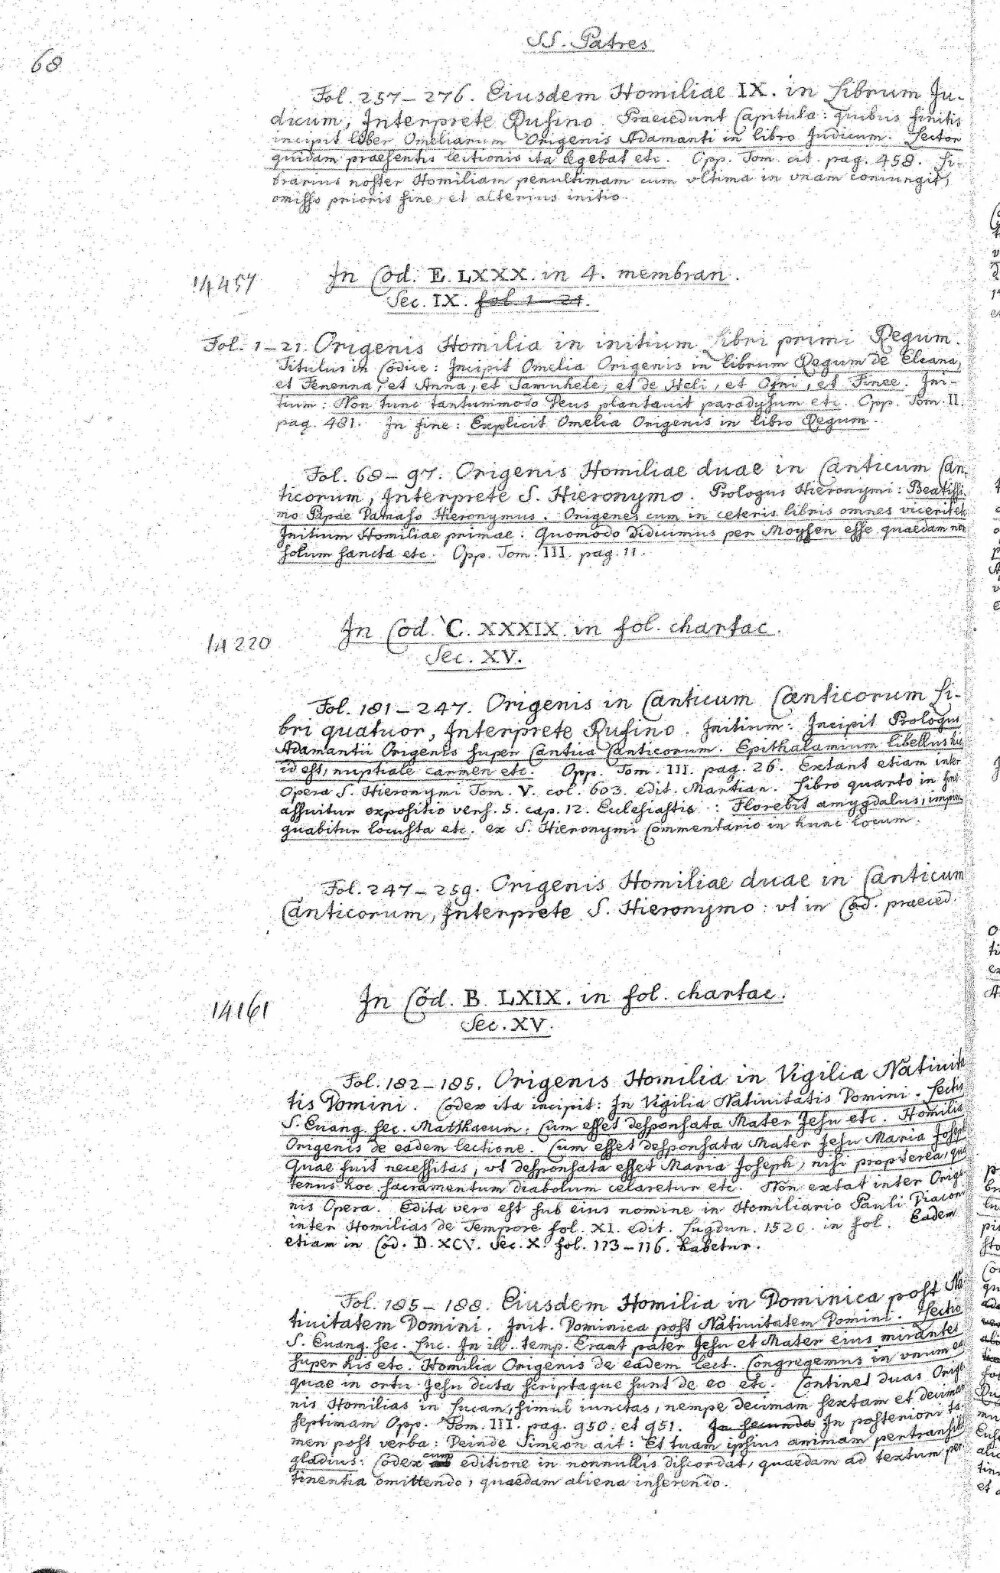 SS. Patres
68
Fol. 257–276. Eiusdem Homiliae IX. in Librum Ju-
dicum, Interprete Rufino. Praecedunt Capitula: quibus finitis
incipit liber Omeliarum Origenis Adamanti in libro Judicum. Lector
quidam praesentis lectionis ita legebat etc. Opp. Tom. cit. pag. 458. Li-
brarius noster Homiliam penultimam cum vltima in vnam coniungit,
omisso prioris fine, et alterius initio.
14457
In Cod. E. LXXX. in 4. membran.
Sec. IX. fol. 1–21.
Fol. 1–21. Origenis Homilia in initium Libri primi Regum.
Titulus in Codice: Incipit Omelia Origenis in librum Regum de Elcana,
et Fenenna, et Anna, et Samuhele, et de Heli, et Ofni, et Finee. Ini-
tium: Non tunc tantummodo Deus plantauit paradysum etc. Opp. Tom. II.
pag. 481. In fine: Explicit Omelia Origenis in libro Regum.
Fol. 68–97. Origenis Homiliae duae in Canticum Can-
ticorum, Interprete S. Hieronymo. Prologus Hieronymi: Beatissi-
mo Papae Damaso Hieronymus. Origenes cum in ceteris libris omnes vicerit etc.
Initium Homiliae primae: Quomodo didicimus per Moysen esse quaedam non
solum sancta etc. Opp. Tom. III. pag. 11.
14220
In Cod. C. XXXIX. in fol. chartac.
Sec. XV.
Fol. 181–247. Origenis in Canticum Canticorum Li-
bri quatuor, Interprete Rufino. Initium: Incipit Prologus
Adamantii Origenis super Cantica Canticorum. Epithalamium libellus hic
id est, nuptiale carmen etc. Opp. Tom. III. pag. 26. Extant etiam inter
Opera S. Hieronymi Tom. V. col. 603. edit. Martian. Libro quarto in fine
assuitur expositio vers. 5. cap. 12. Ecclesiastis: Florebit amygdalus, impin-
guabitur locusta etc. ex S. Hieronymi Commentario in hunc locum.
Fol. 247–259. Origenis Homiliae duae in Canticum
Canticorum, Interprete S. Hieronymo: vt in Cod. praeced.
14161
In Cod. B. LXIX. in fol. chartac.
Sec. XV.
Fol. 182–185. Origenis Homilia in Vigilia Natiuita-
tis Domini. Codex ita incipit: In Vigilia Natiuitatis Domini. Lectio
S. Euang. sec. Matthaeum. Cum esset desponsata Mater Jesu etc. Homilia
Origenis de eadem lectione. Cum esset desponsata Mater Jesu Maria Joseph
Quae fuit necessitas, vt desponsata esset Maria Joseph, nisi propterea, qua-
tenus hoc sacramentum diabolum celaretur etc. Non extat inter Orige-
nis Opera. Edita vero est sub eius nomine in Homiliario Pauli Diaconi
inter Homilias de Tempore fol. XI. edit. Lugdun. 1520. in fol. Eadem
etiam in Cod. D. XCV. Sec. X. fol. 113–116. habetur.
Fol. 185–188. Eiusdem Homilia in Dominica post Na-
tiuitatem Domini. Init. Dominica post Natiuitatem Domini. Lectio
S. Euang. sec. Luc. In ill. temp. Erant pater Jesu et Mater eius mirantes
super his etc. Homilia Origenis de eadem Lect. Congregemus in vnum ea
quae in ortu Jesu dicta scriptaque sunt de eo etc. Continet duas Orige-
nis Homilias in Lucam, simul iunctas, nempe decimam sextam et decimam
septimam Opp. Tom. III. pag. 950. et 951. In secunda In posteriori ta-
men post verba: Deinde Simeon ait: Et tuam ipsius animam pertransibit
gladius: Codex cum editione in nonnullis discordat, quaedam ad textum per-
tinentia omittendo, quaedam aliena inserendo.